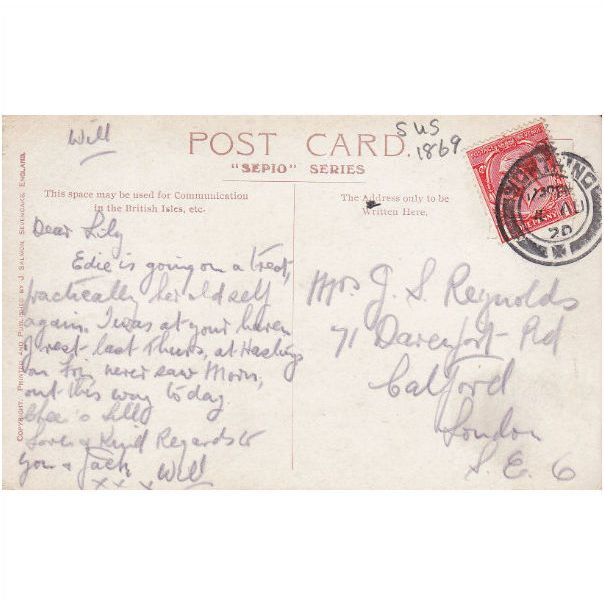 Will
POST CARD.
SUS
1869
"SEPIO" SERIES
This space may be used for Communication
in the British Isles, etc.
The Address only to be
Written Here.
COPYRIGHT. PRINTED AND PUBLISHED BY J. SALMON, SEVENOAKS, ENGLAND.
Dear Lily
Edie is going on a treat,
practically her old self
again. I was at your haven
of rest last Thurs, at Hastings
never saw Mom,
out this way today.
Love & Kind Regards to
you & Jack Will
xx x
Mrs J. S. Reynolds
71 Davenport Rd
Catford
London
S. E. 6
20